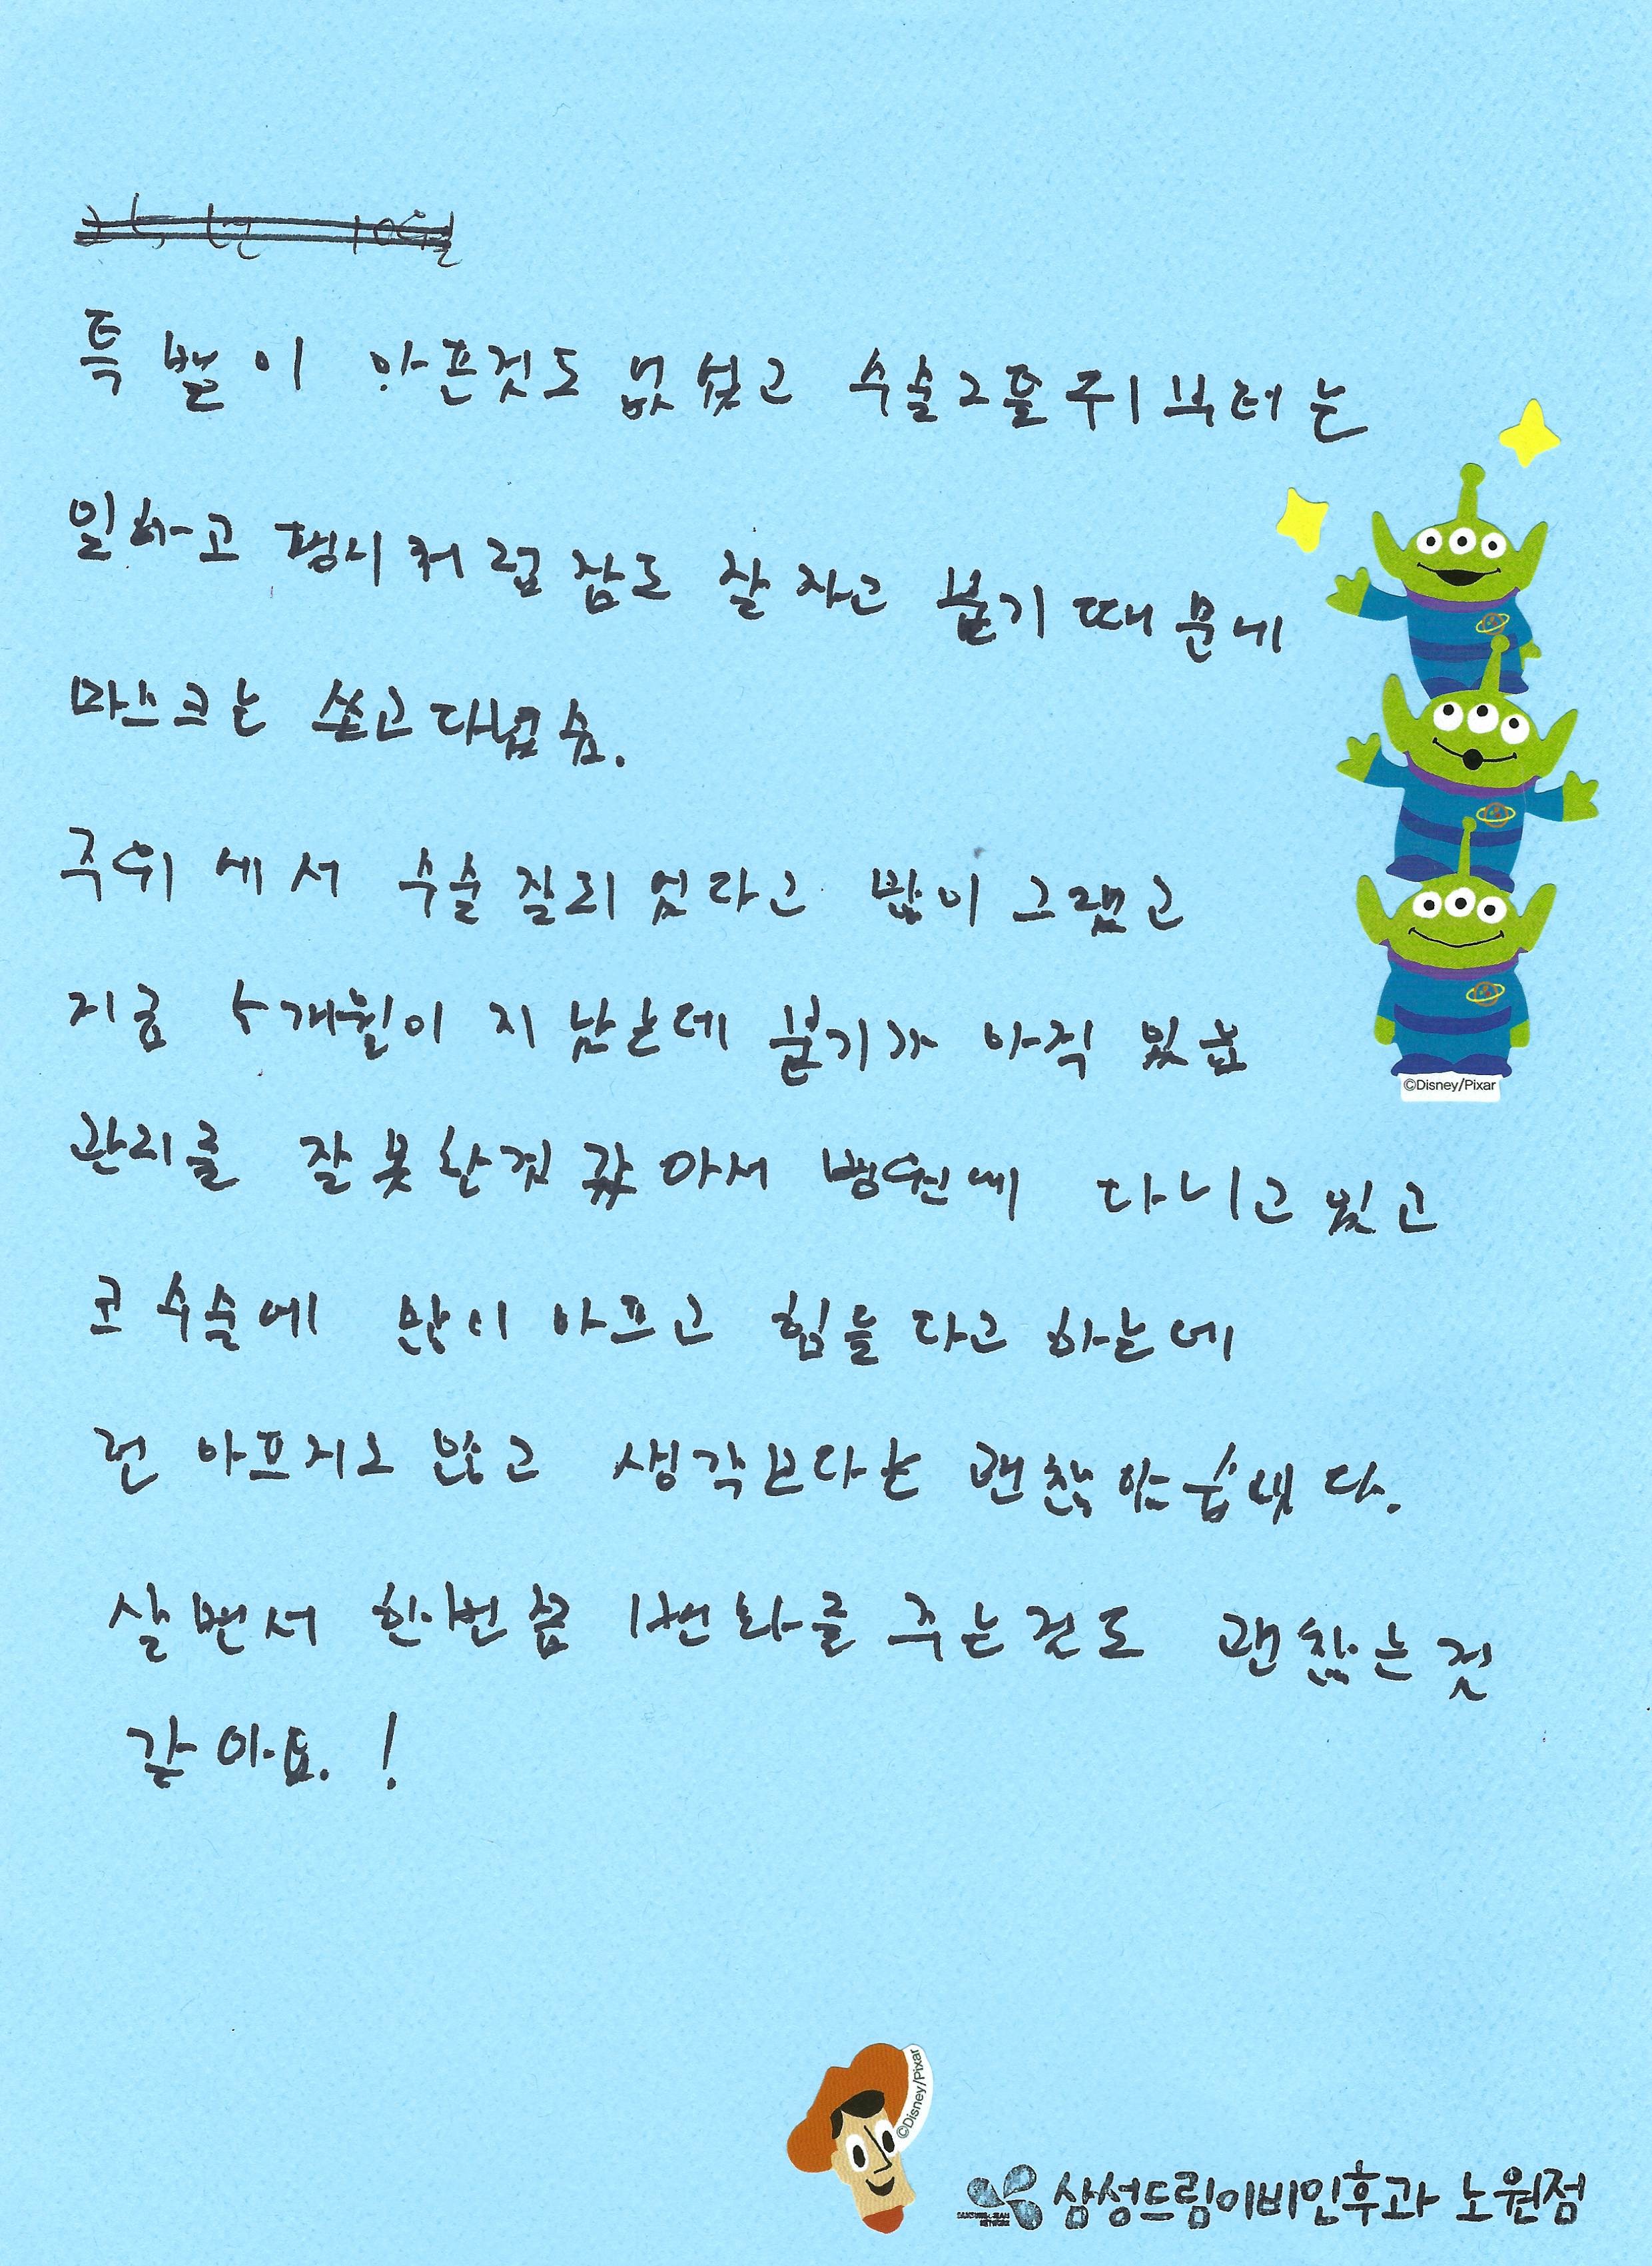 특별이 아픈것도 없섰고 수술그틀뒤부터는
일하고 평시처럼 잠도 잘 자고 붙기 때문에
마스크는 쓰고다녔슴.
주위에서 수술 잘되었다고 많이 그랬고
지금 5개월이 지났는데 붙기가 아직 있슴
관리를 잘못한것 같아서 병원에 다니고 있고
코 수술에 많이 아프고 힘들다고 하는데
전 아프지도 않고 생각보다는 괜찮았습니다.
살면서 한번쯤 변화를 주는것도 괜찮는것
같아요. !
©Disney/Pixar
©Disney/Pixar
삼성드림이비인후과 노원점